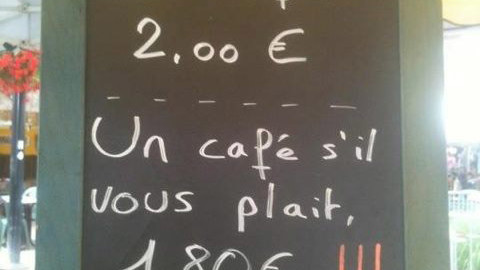 2.00 €
Un café s'il
vous plait,
1.80 € !!!